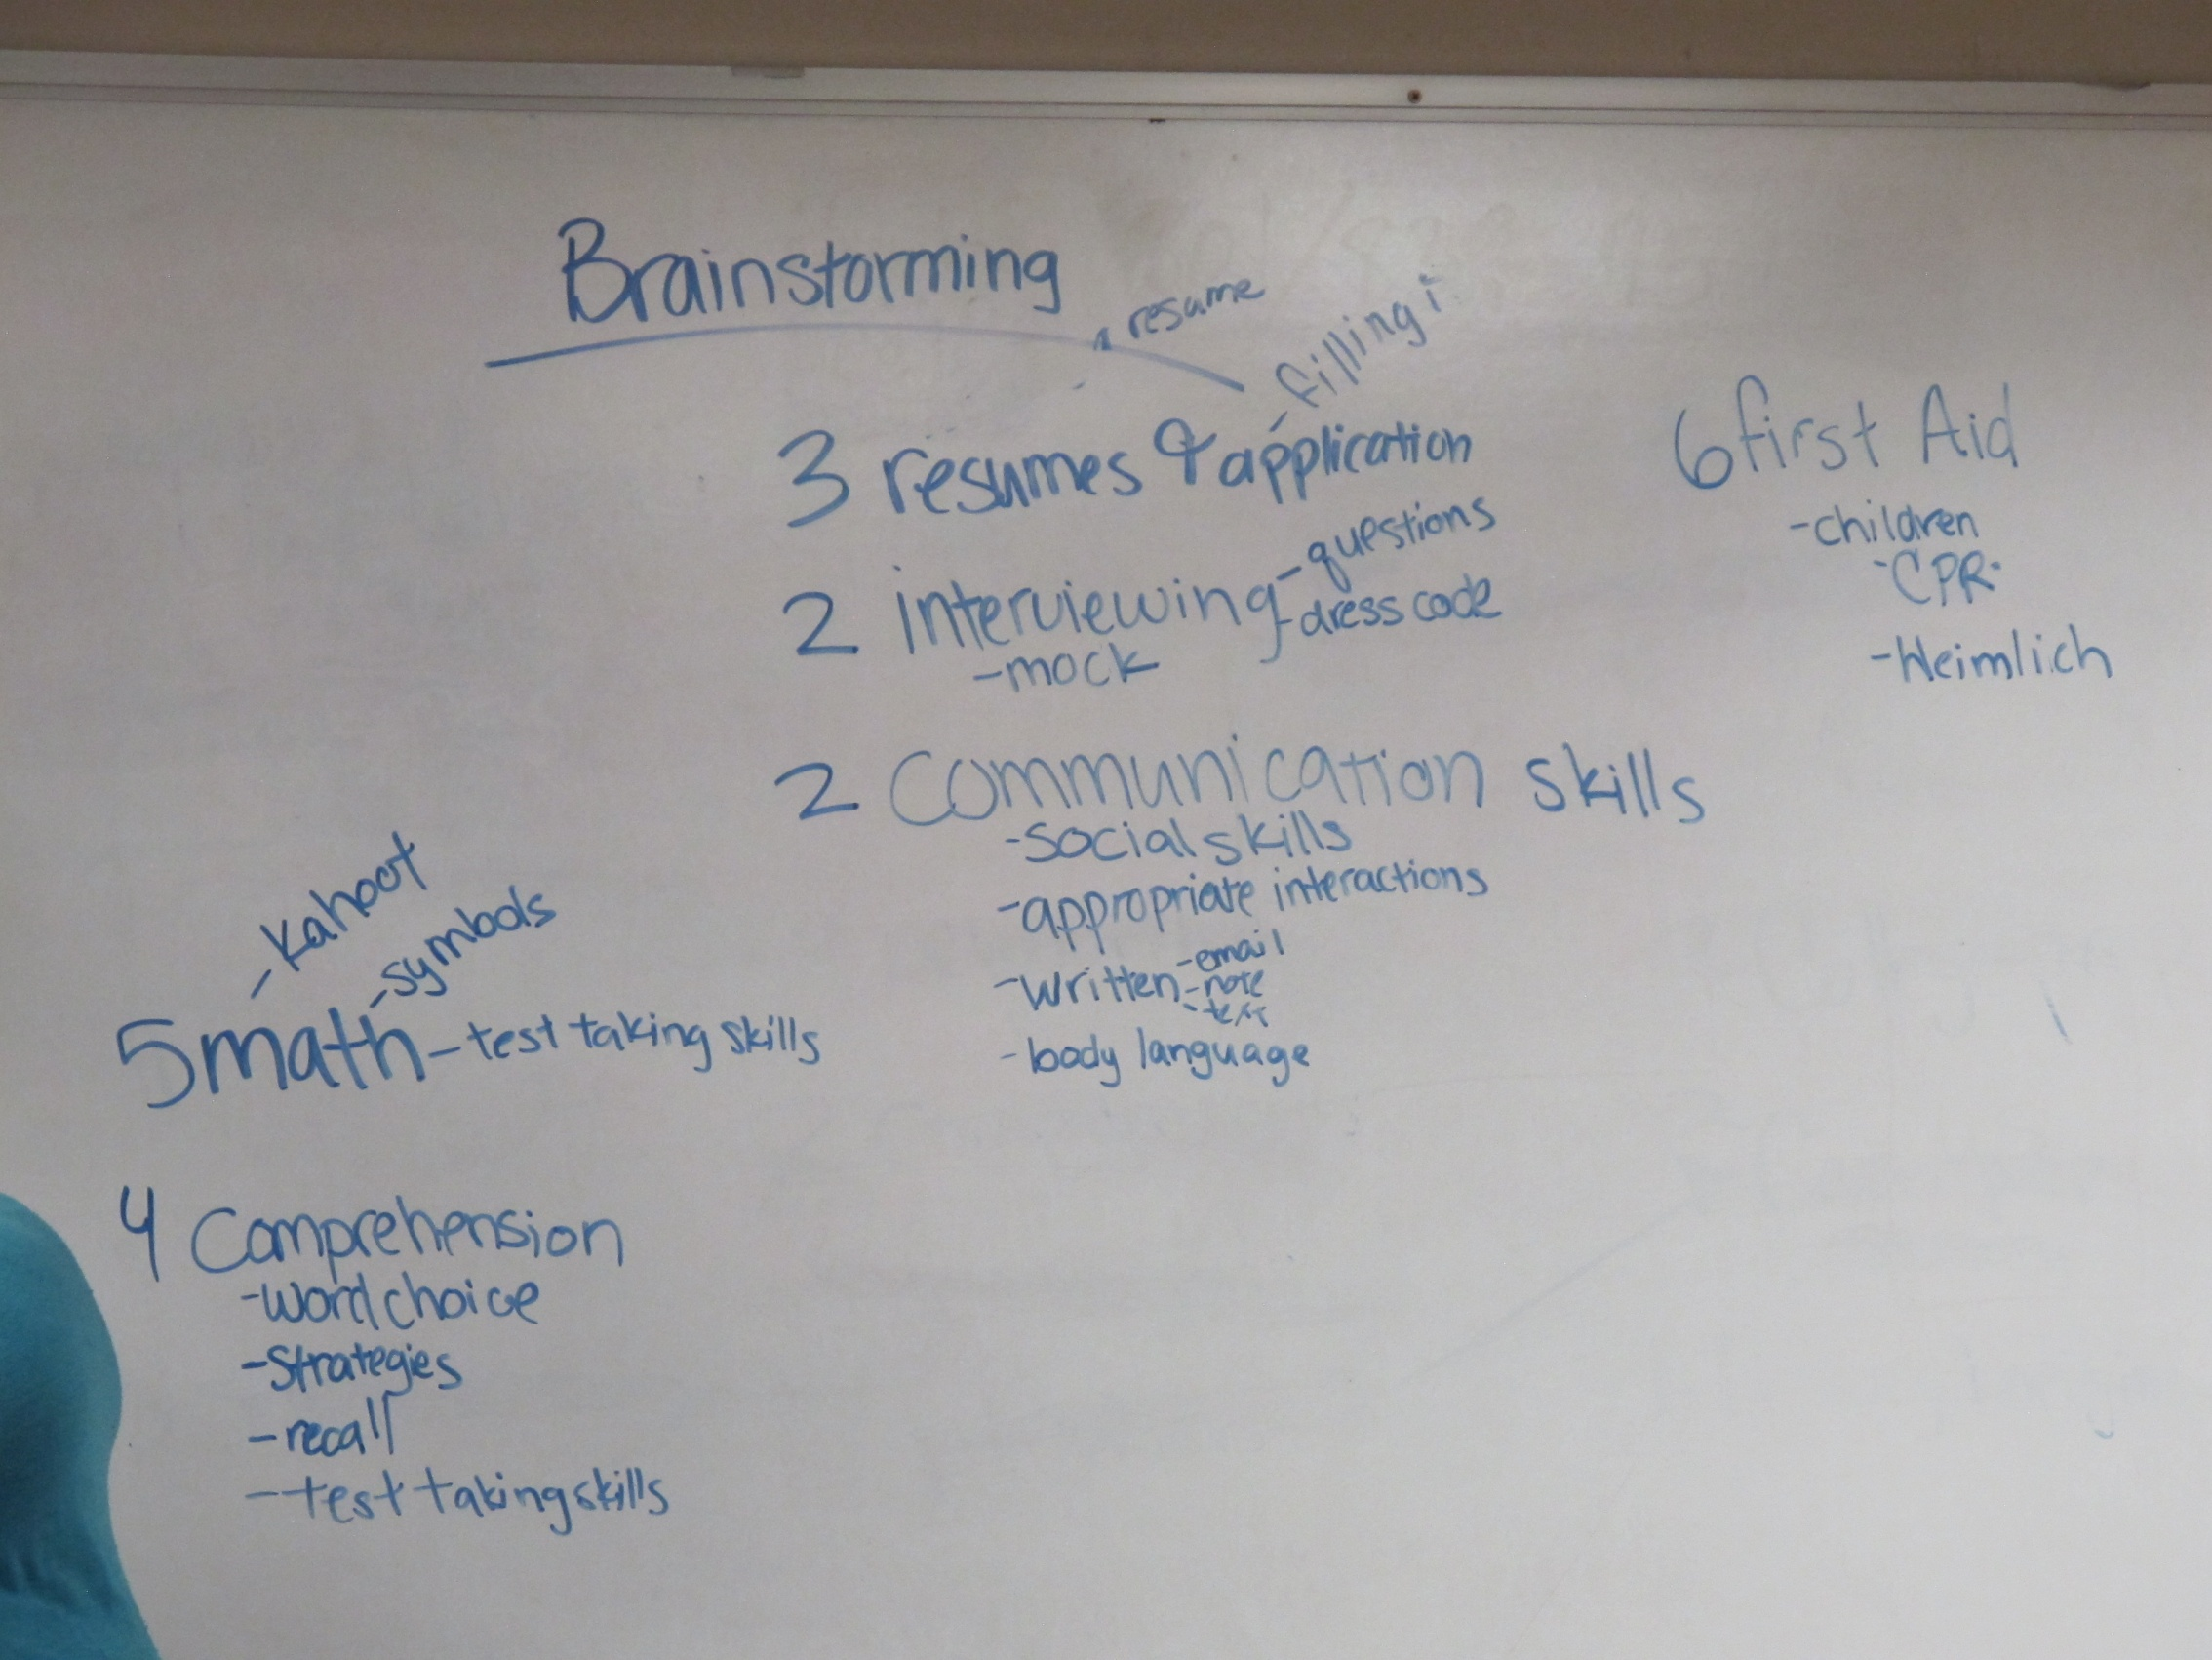 Brainstorming
resume
- filling i
3 resumes & application
2 interviewing - questions
- dress code
- mock
2 Communication skills
- social skills
- appropriate interactions
- written - email
- note
- text
- body language
6 first Aid
- children
- CPR
- Heimlich
- Kahoot
- symbols
5 math - test taking skills
4 Comprehension
- word choice
- Strategies
- recall
- test taking skills